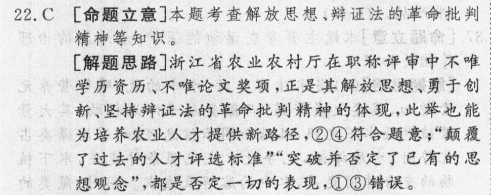 22.C [命题立意]本题考查解放思想、辩证法的革命批判
精神等知识。
[解题思路]浙江省农业农村厅在职称评审中不唯
学历资历、不唯论文奖项,正是其解放思想、勇于创
新、坚持辩证法的革命批判精神的体现,此举也能
为培养农业人才提供新路径,②④符合题意;“颠覆
了过去的人才评选标准”“突破并否定了已有的思
想观念”,都是否定一切的表现,①③错误。